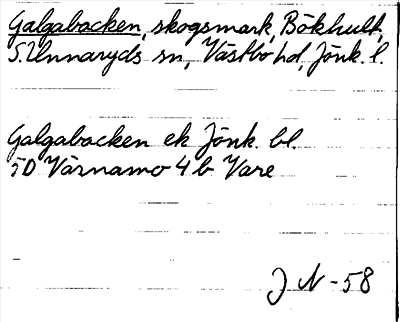 Galgabacken, skogsmark, Bökhult,
S. Unnaryds sn, Västbo hd, Jönk. l.
Galgabacken ek Jönk. bl.
5D Värnamo 4 b Vare
J N -58